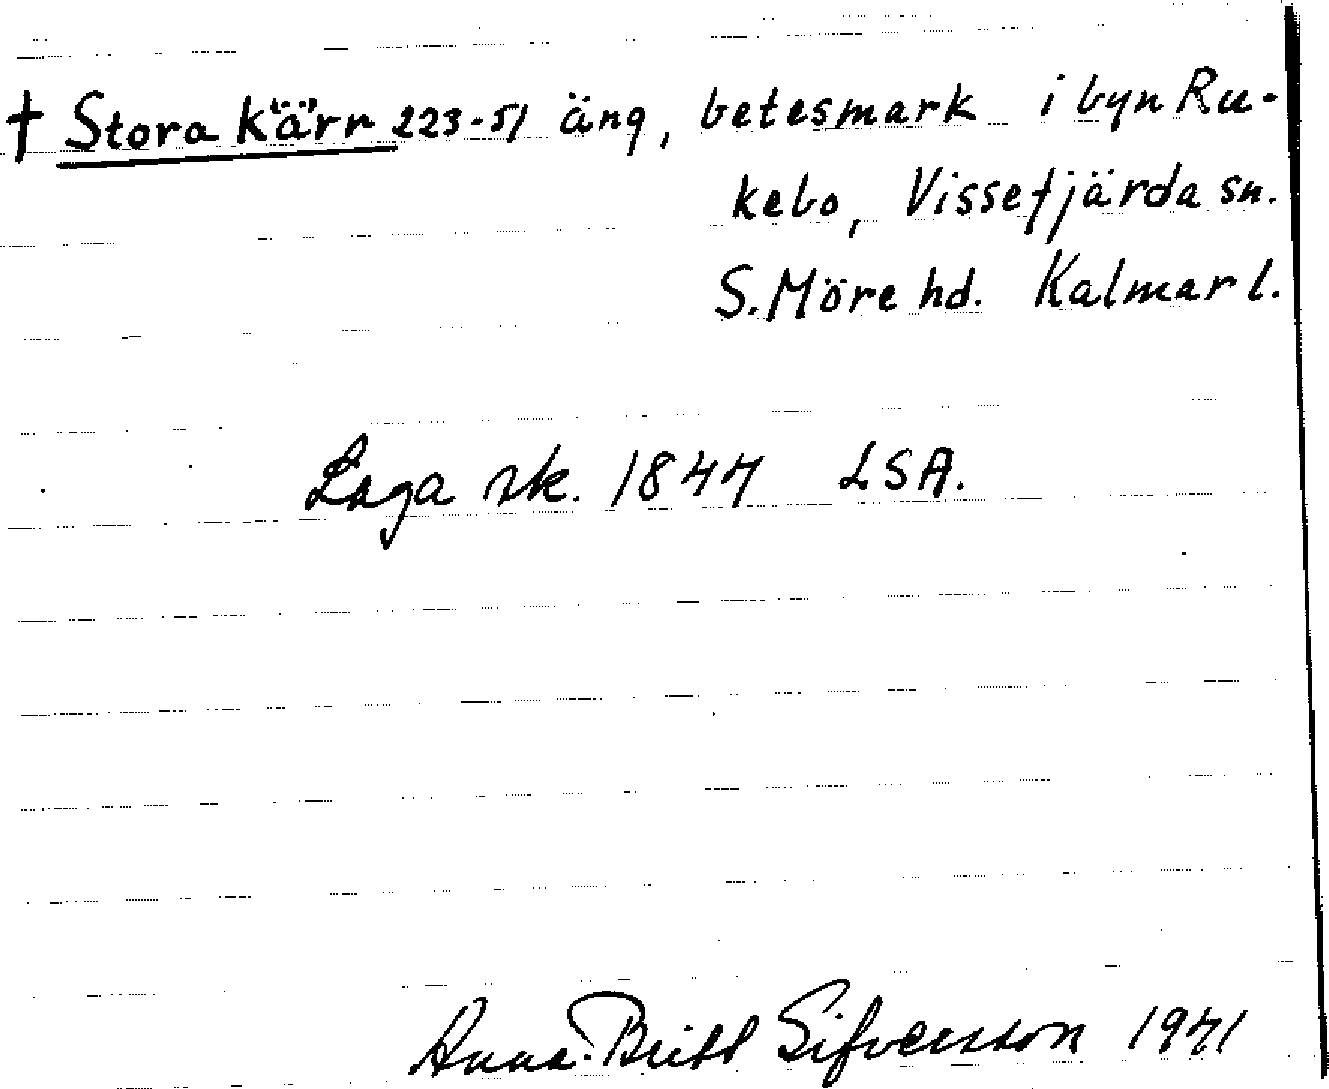 † Stora Kärr 223-51 äng, betesmark i byn Ru-
kebo, Vissefjärda sn.
S. Möre hd. Kalmar l.
Laga sk. 1847 LSA.
Anna-Britt Sifversson 1971